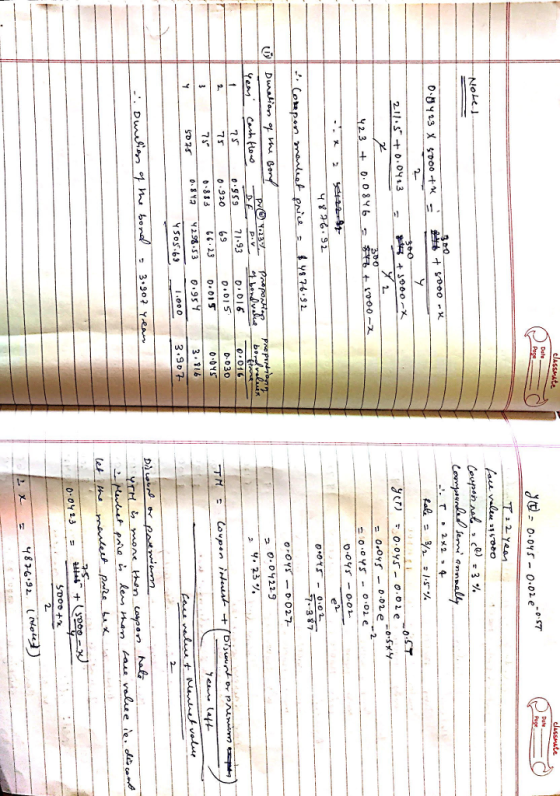 classmate
Date
Page
y(t) = 0.045 - 0.02 e^-0.5T
T = 2 year
face value = 5000
Coupon rate = (R) = 3 %
Compounded semi annually
∴ T = 2 x 2 = 4
Rate = 3/2 = 1.5 %
y(T) = 0.045 - 0.02 e^-0.5T
= 0.045 - 0.02 e^-0.5x4
= 0.045 - 0.02 e^-2
0.045 - 0.02 / e^2
0.045 - 0.02 / 7.387
0.045 - 0.027
= 0.04229
= 4.23 %
YTM = Coupon interest + (Discount or premium / years left)
face value + Market value / 2
Discount or premium
YTM is more than coupon rate
∴ Market price is less than face value i.e. discount
let the market price be x
0.0423 = 75 + (5000 - x / 4)
5000 + x / 2
∴ x = 4876.92 (Note 1)
classmate
Date
Page
Note 1
0.0423 x 5000 + x / 2 = 300 + 5000 - x / 4
211.5 + 0.0423 x / 2 = 300 + 5000 - x / 4 2
423 + 0.0846 x = 300 + 5000 - x
∴ x = 4876.92
∴ Coupon market price = $ 4876.92
(ii) Duration of the Bond
Year Cashflow D.F. P.V proportion of bond value proportion of bond value x time
1 75 0.959 71.93 0.016 0.016
2 75 0.920 69 0.015 0.030
3 75 0.883 66.23 0.015 0.045
4 5075 0.847 4298.53 0.954 3.816
4505.69 1.000 3.907
∴ Duration of the bond = 3.907 year